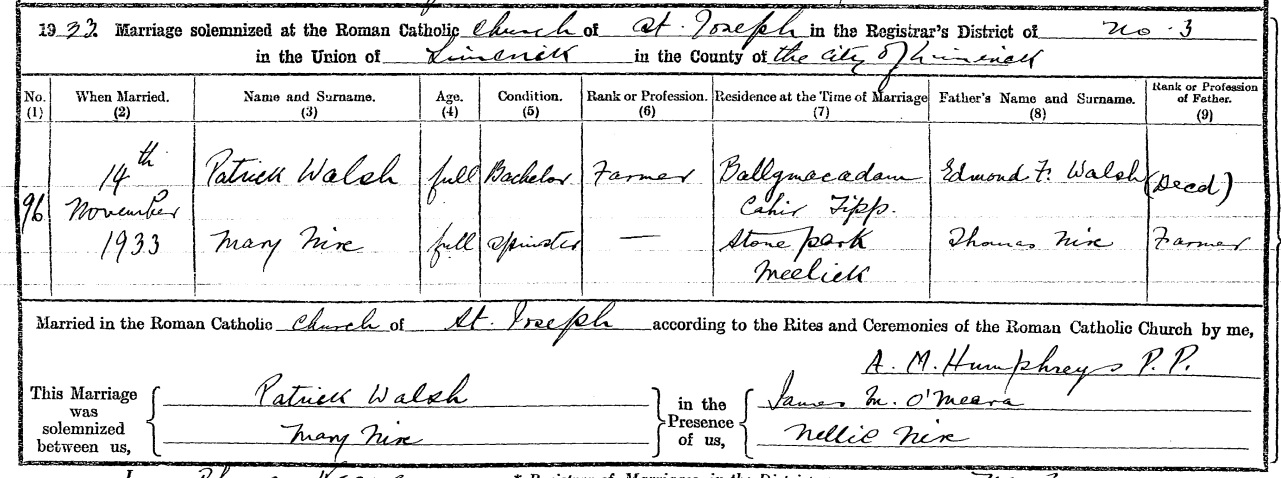 1933. Marriage solemnized at the Roman Catholic Church of St. Joseph in the Registrar's District of No. 3
in the Union of Limerick in the County of the City of Limerick
No. When Married. Name and Surname. Age. Condition. Rank or Profession. Residence at the Time of Marriage Father's Name and Surname. Rank or Profession of Father.
(1) (2) (3) (4) (5) (6) (7) (8) (9)
14th Patrick Walsh full Bachelor Farmer Ballymacadam Edmond F. Walsh (Decd)
96 November Cahir Tipp.
1933 Mary Nixe full Spinster — Stone park Thomas Nixe Farmer
Meelick
Married in the Roman Catholic Church of St. Joseph according to the Rites and Ceremonies of the Roman Catholic Church by me,
A. M. Humphreys P. P.
This Marriage was solemnized between us,
Patrick Walsh
Mary Nixe
in the Presence of us,
James M. O'Meara
Nellie Nixe
* Registrar of Marriages in the District